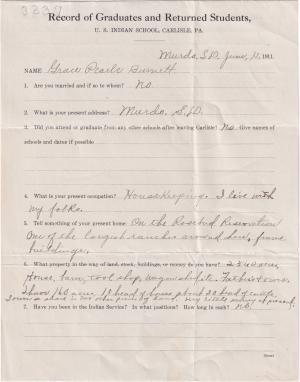 Record of Graduates and Returned Students,
U. S. INDIAN SCHOOL, CARLISLE, PA.
Murdo, S.D. June, 11, 1911.
NAME Grace Pearle Burnett.
1. Are you married and if so to whom? No.
2. What is your present address? Murdo, S.D.
3. Did you attend or graduate from any other schools after leaving Carlisle? No. Give names
of schools and dates if possible
4. What is your present occupation? Housekeeping. I live with
my folks.
5. Tell something of your present home. On the Rosebud Reservation
One of the largest ranches around here, frame
buildings.
6. What property in the way of land, stock, buildings, or money do you have? 2240 acres,
House, barn, tool shop, wagon shed etc.
I have 160 acres, 17 head of horse about 30 head of cattle,
I own a share in two other pieces of land. Very little money at present.
7. Have you been in the Indian Service? In what positions? How long in each? No.
(Over)